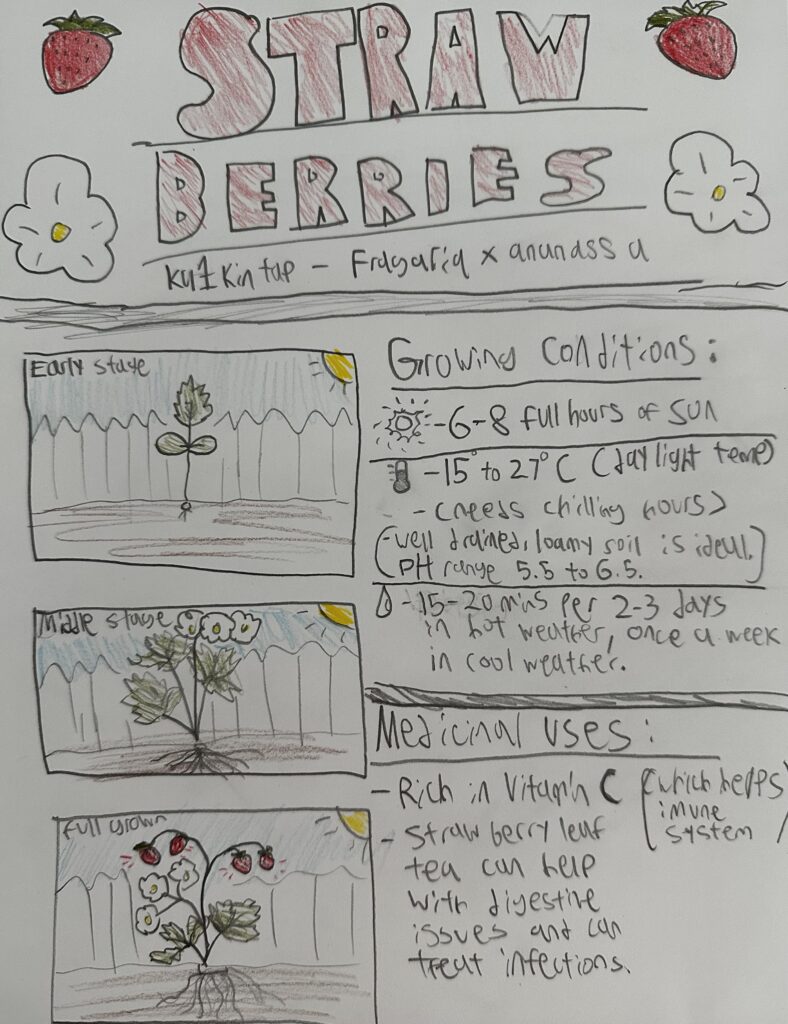 STRAW
BERRIES
Fragaria x ananassa
Early stage
Growing Conditions:
-6-8 full hours of sun
-15° to 27°C (day light temp)
- (needs chilling hours)
(-well drained, loamy soil is ideal.
PH range 5.5 to 6.5.)
Middle stage
-15-20 mins per 2-3 days
in hot weather, once a week
in cool weather.
Medicinal uses:
- Rich in Vitamin C (which helps
imune
system)
Full grown
- strawberry leaf
tea can help
with digestive
issues and can
treat infections.